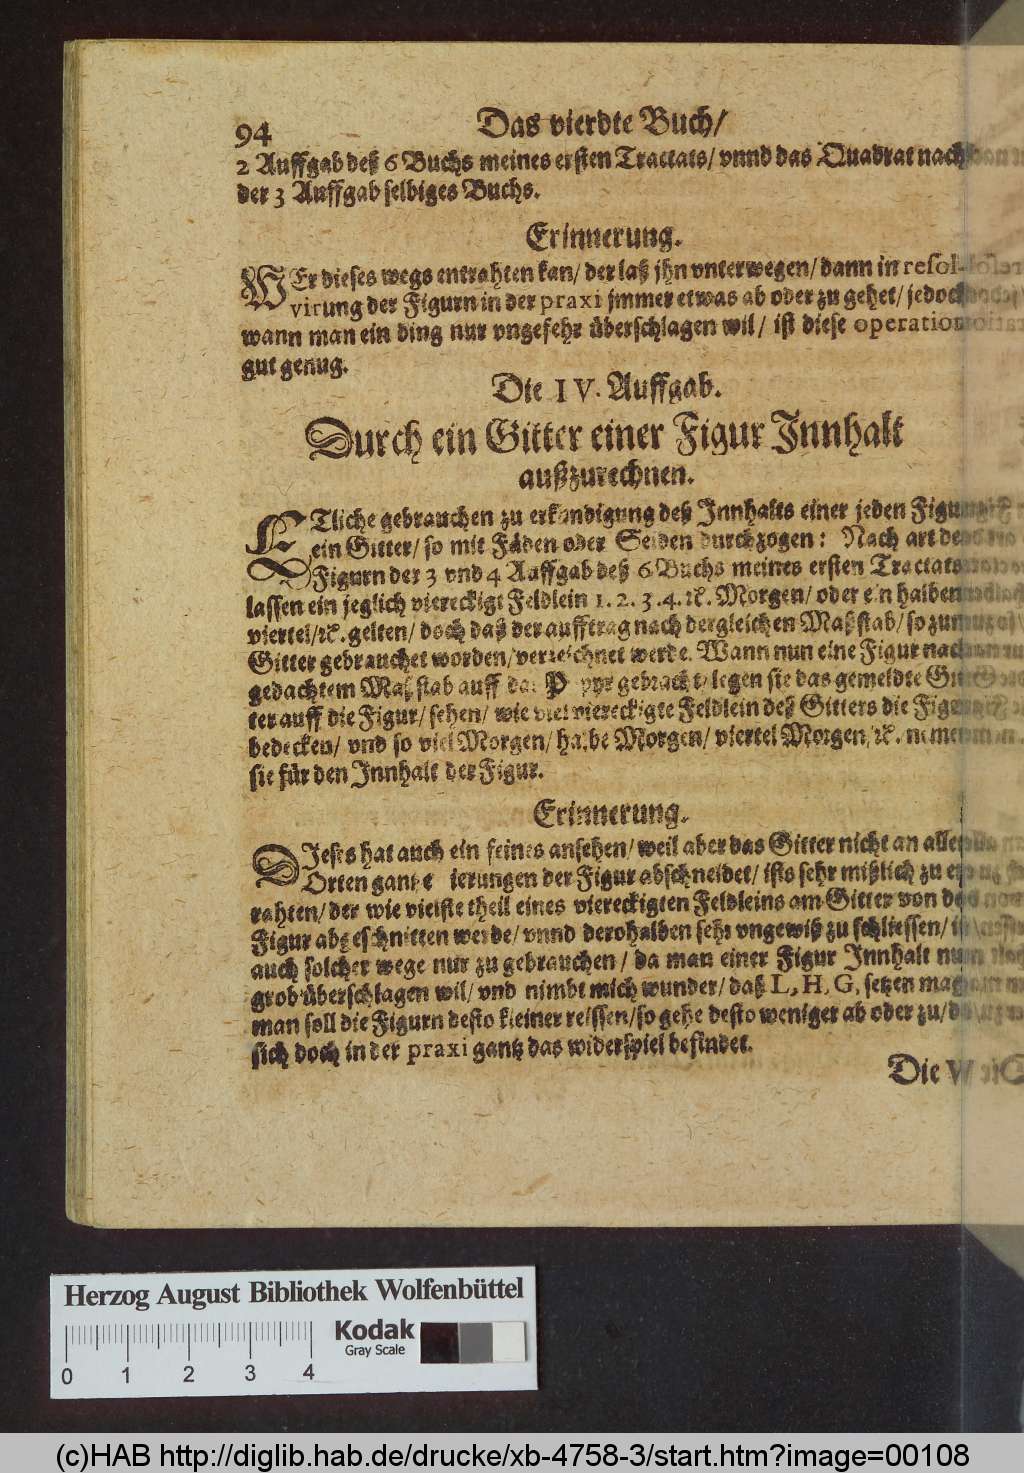 94 Das vierdte Buch/
2 Auffgab deß 6 Buchs meines ersten Tractats/ vnnd das Quadrat nach
der 3 Auffgab selbiges Buchs.
Erinnerung.
WEr dieses wegs entrahten kan/ der laß jhn vnterwegen/ dann in resol-
virung der Figurn in der praxi jmmer etwas ab oder zu gehet/ jedoch
wann man ein ding nur vngefehr überschlagen wil/ ist diese operation
gut genug.
Die IV. Auffgab.
Durch ein Gitter einer Figur Jnnhalt
außzurechnen.
ETliche gebrauchen zu erkündigung deß Jnnhalts einer jeden Figur
ein Gitter/ so mit Fäden oder Seiden durchzogen: Nach art der
Figurn der 3 vnd 4 Auffgab deß 6 Buchs meines ersten Tractats
lassen ein jeglich viereckigt Feldlein 1. 2. 3. 4. ꝛc. Morgen/ oder ein halben
viertel/ ꝛc. gelten/ doch daß der aufftrag nach dergleichen Maßstab/ so zum
Gitter gebrauchet worden/ verzeichnet werde. Wann nun eine Figur nach
gedachtem Maßstab auff das Papyr gebracht/ legen sie das gemeldte Git-
ter auff die Figur/ sehen/ wie viel viereckigte Feldlein deß Gitters die Figur
bedecken/ vnd so viel Morgen/ halbe Morgen/ viertel Morgen/ ꝛc. nemen
sie für den Jnnhalt der Figur.
Erinnerung.
DJeses hat auch ein feines ansehen/ weil aber das Gitter nicht an allen
Orten gantze vierungen der Figur abschneidet/ ists sehr mißlich zu er-
rahten/ der wie vielste theil eines viereckigten Feldleins am Gitter von der
Figur abgeschnitten werde/ vnnd derohalben sehr vngewiß zu schliessen/ ist
auch solcher wege nur zu gebrauchen/ da man einer Figur Jnnhalt nun
grob überschlagen wil/ vnd nimbt mich wunder/ daß L, H, G, setzen mag
man soll die Figurn desto kleiner reissen/ so gehe desto weniger ab oder zu/ da
sich doch in der praxi gantz das widerspiel befindet.
Die
Herzog August Bibliothek Wolfenbüttel
Kodak
Gray Scale
0 1 2 3 4
(c)HAB http://diglib.hab.de/drucke/xb-4758-3/start.htm?image=00108